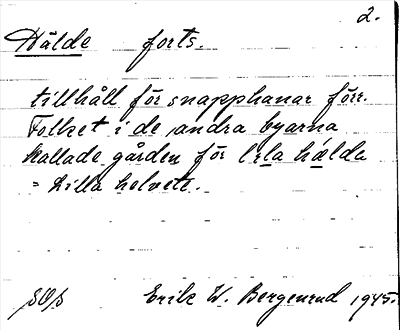 2.
Hälde forts.
tillhåll för snapphanar förr.
Folket i de andra byarna
kallade gården för
= Lilla helvete.
Erik W. Bergenrud 1945.